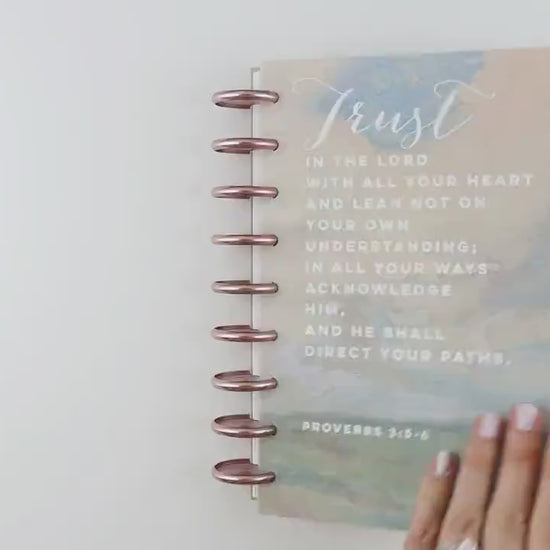 Trust
IN THE LORD
WITH ALL YOUR HEART
AND LEAN NOT ON
YOUR OWN
UNDERSTANDING;
IN ALL YOUR WAYS
ACKNOWLEDGE
HIM,
AND HE SHALL
DIRECT YOUR PATHS.
PROVERBS 3:5-6